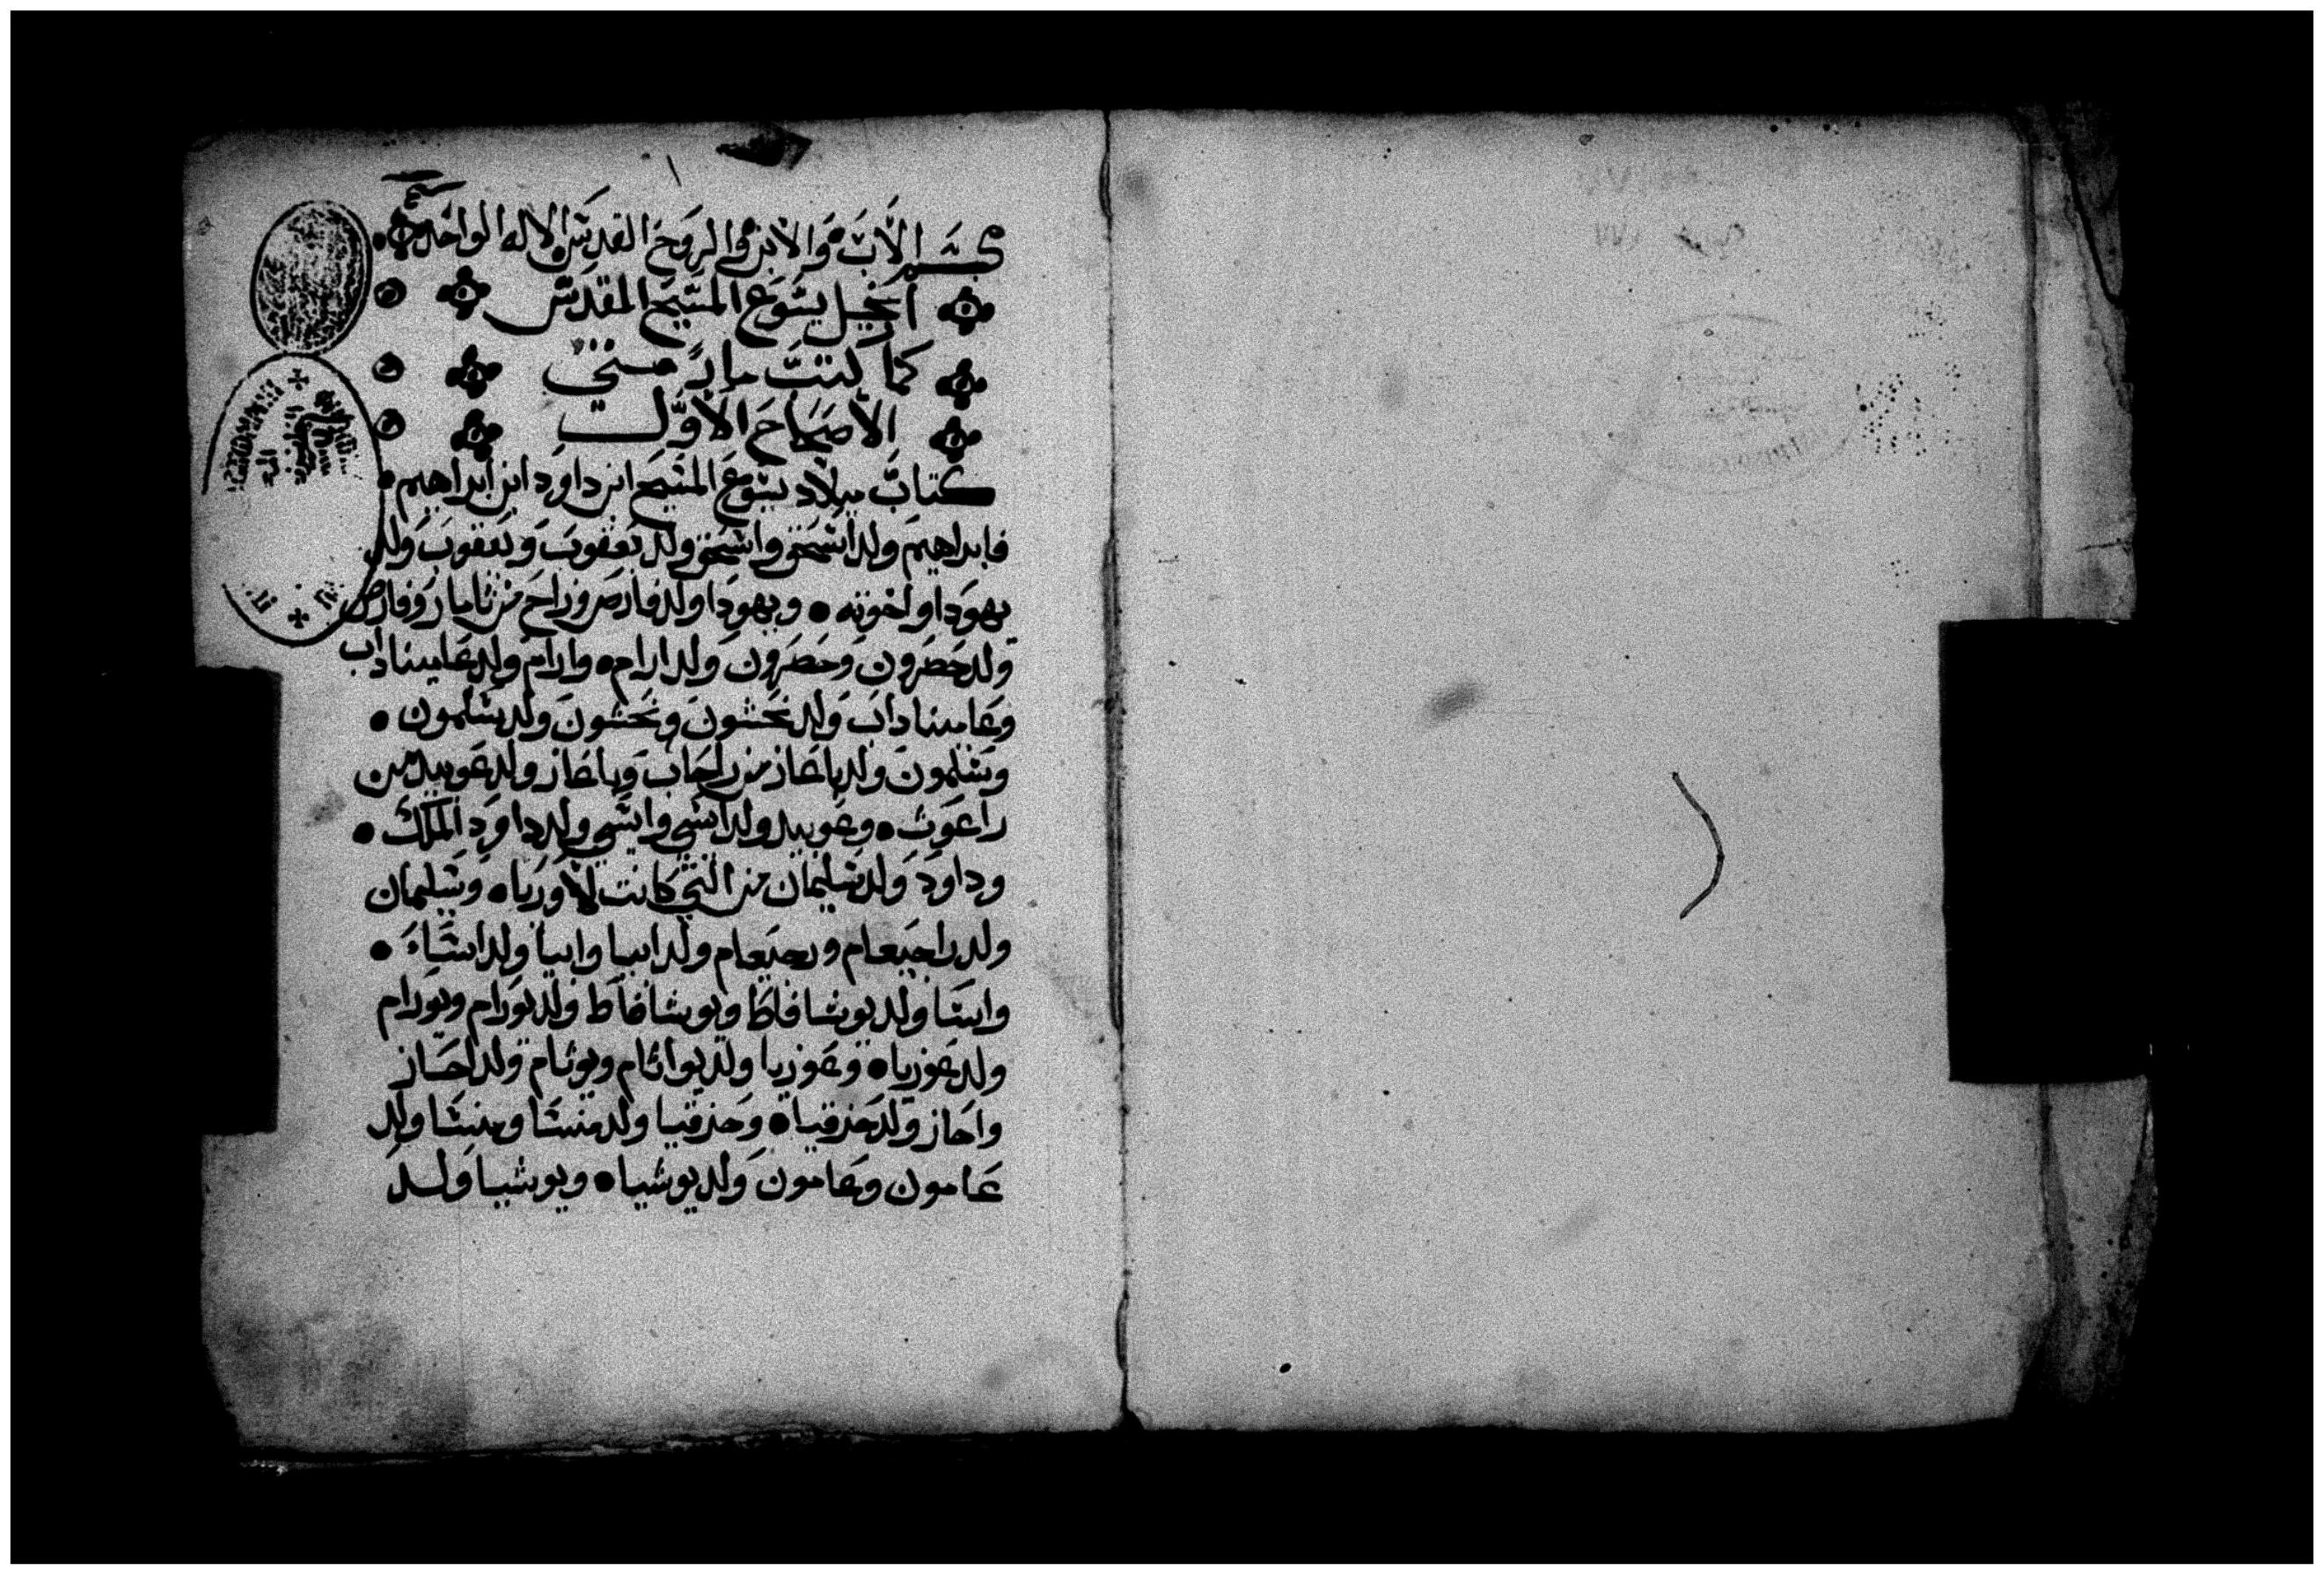 بسم الاب والابن والروح القدس الاله الواحد
انجيل يسوع المسيح المقدس
كما كتب مار متي
الاصحاح الاول
كتاب ميلاد يسوع المسيح ابن داود ابن ابراهيم
فابراهيم ولد اسحق واسحق ولد يعقوب ويعقوب ولد
يهودا واخوته • ويهودا ولد فارص وزراح من تامار وفارص
ولد حصرون وحصرون ولد ارام • وارام ولد عاميناداب
وعاميناداب ولد نحشون ونحشون ولد سلمون •
وسلمون ولد باعاز من راحاب وباعاز ولد عوبيد من
راعوث • وعوبيد ولد ايسي وايسي ولد داود الملك •
وداود ولد سليمان من التي كانت لاوريا • وسليمان
ولد راحبعام ورحبعام ولد ابيا وابيا ولد اساء •
واسا ولد يوشافاط ويوشافاط ولد يورام ويورام
ولد عوزيا • وعوزيا ولد يواثام ويوثام ولد احاز
واحاز ولد حزقيا • وحزقيا ولد منسا ومنسا ولد
عامون وعامون ولد يوشيا • ويوشيا ولد